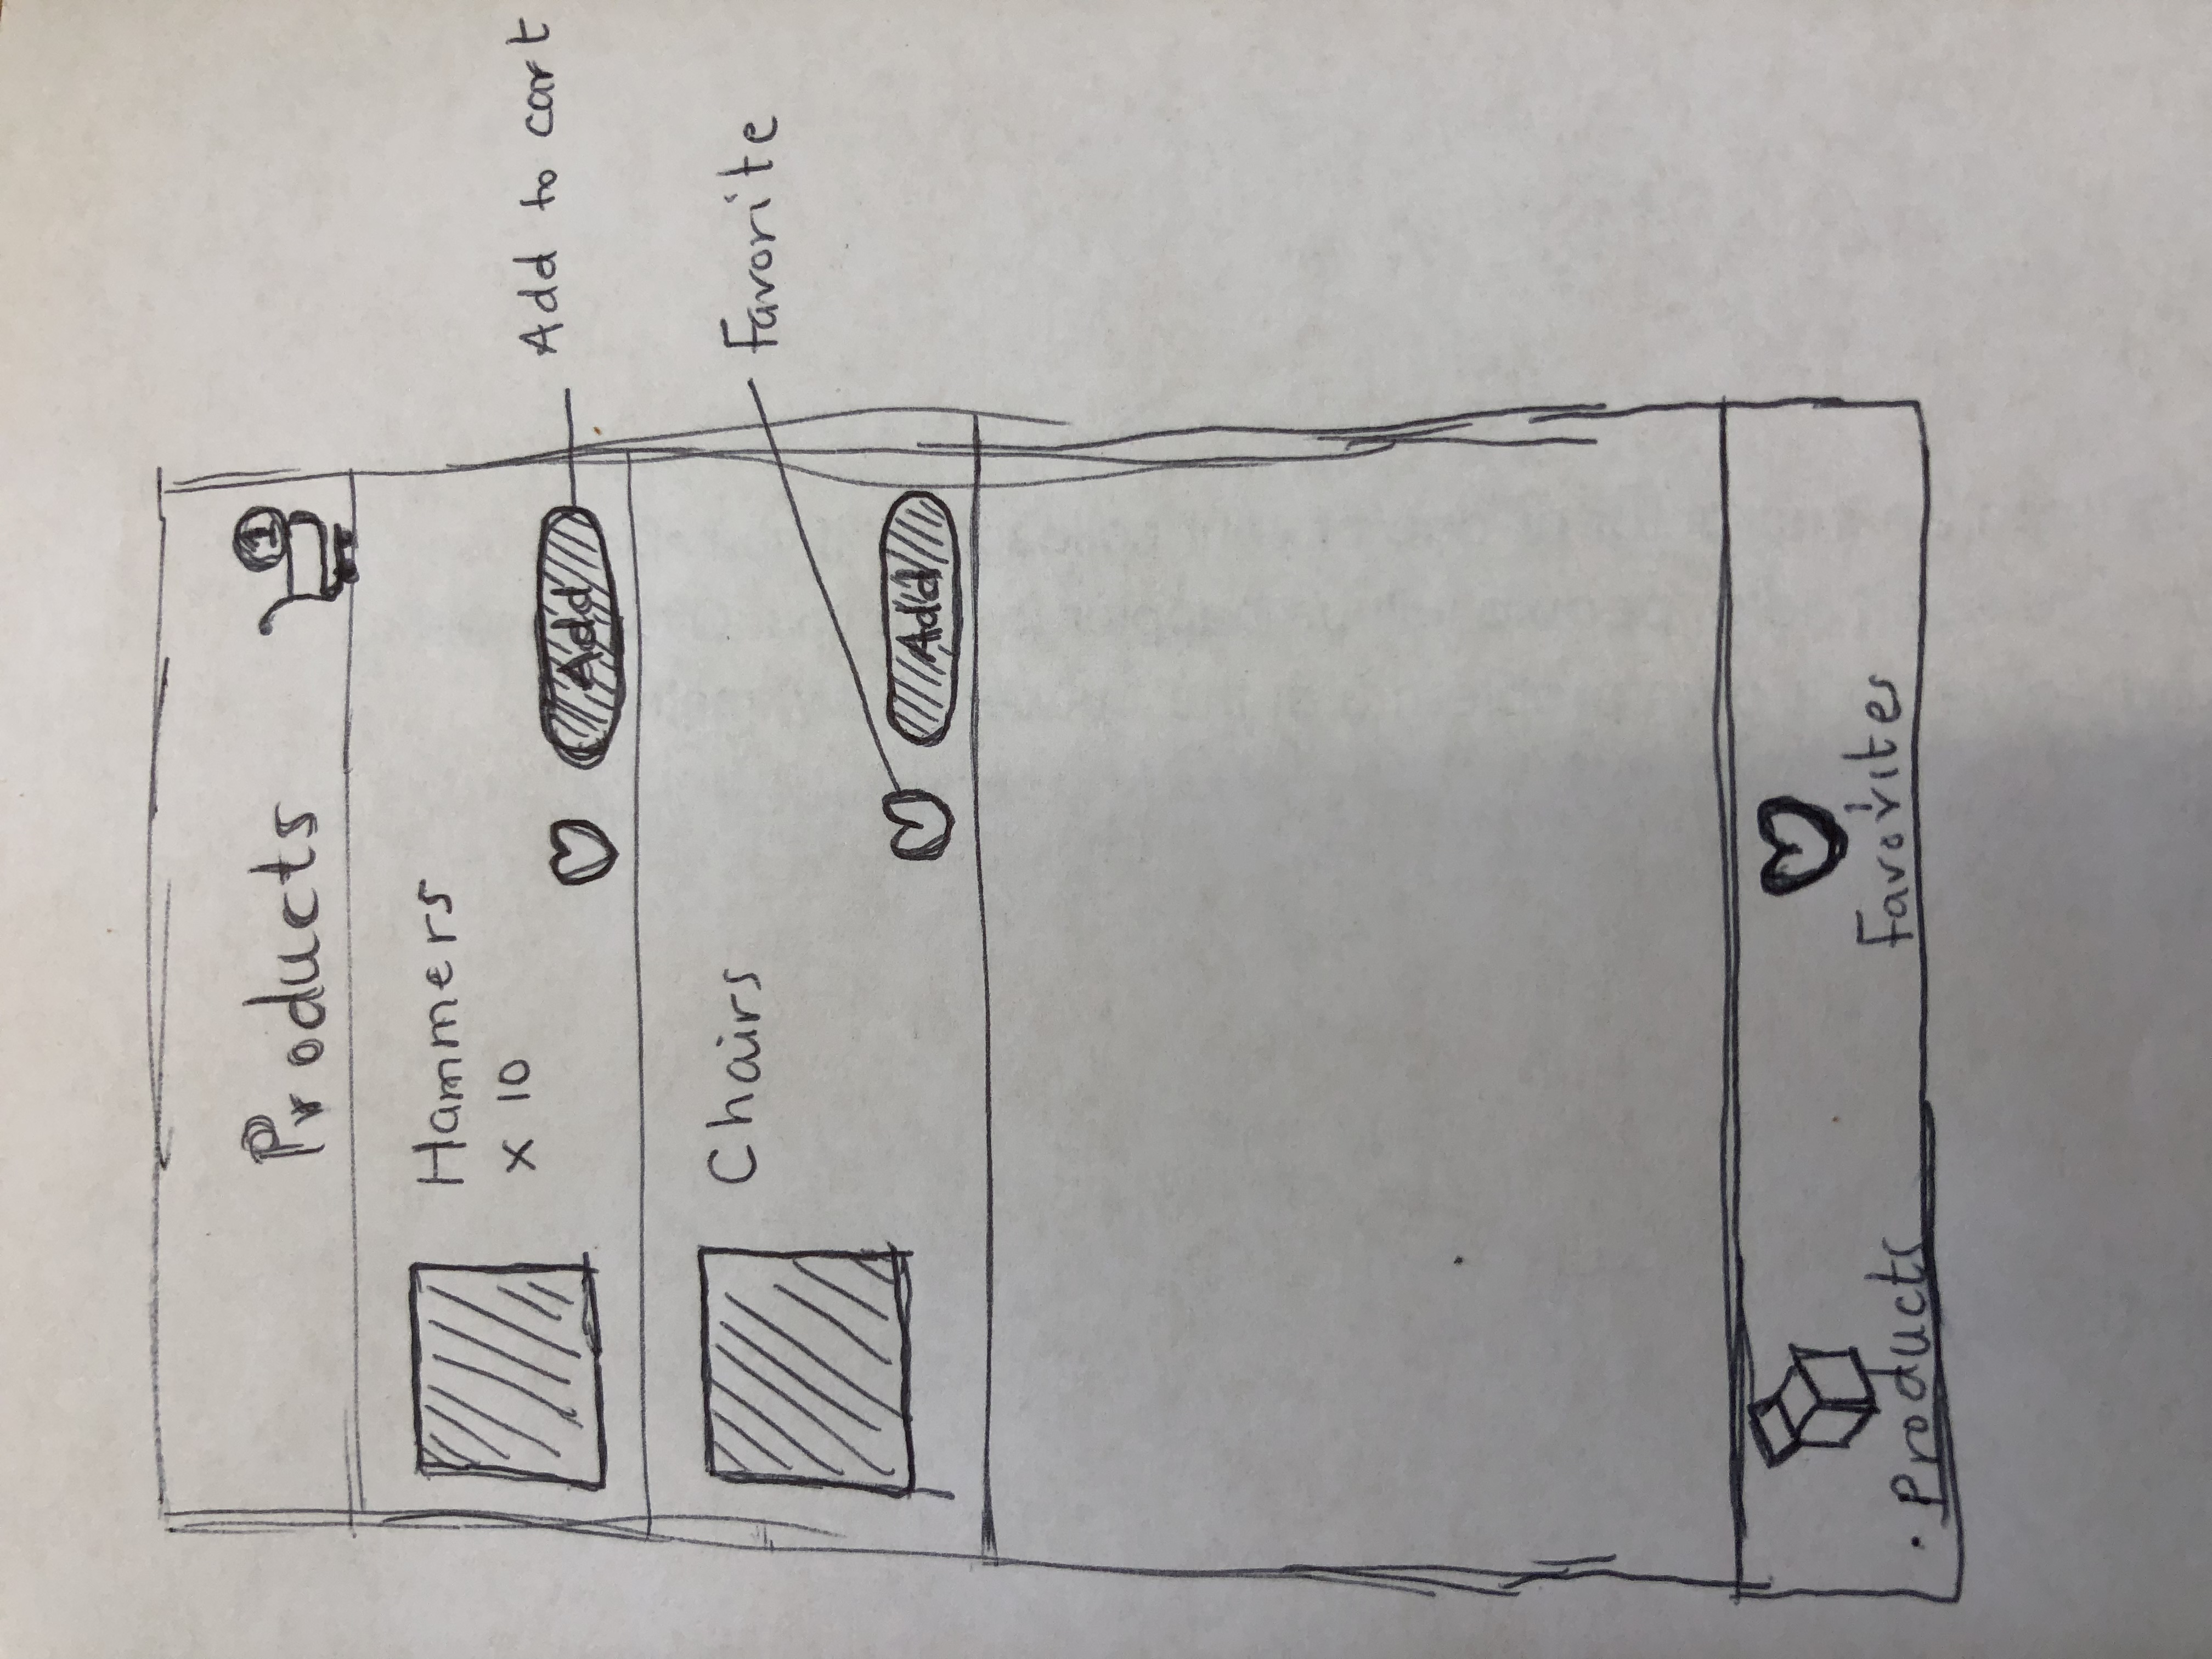 Products
1
Hammers
x 10
Add
Add to cart
Chairs
Favorite
Add
Products
Favorites